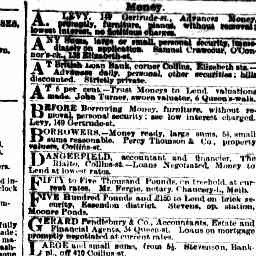 Money.
A. LEVY, 149 Gertrude-st., Advances Money,
promptly, furniture, pianos, without removal;
lowest interest, no fictitious charges.
ANY Sum, large or small, personal security, immediately on application. Samuel Crawcour, O'Connor's-ch., 138 Elizabeth-st.
AT British Loan Bank, corner Collins, Elizabeth sts.—
Advances daily, personal, other securities; bills
discounted. Strictly private.
AT 4 per cent.—Trust Moneys to Lend, valuations
made. John Turner, sworn valuator, 4 Queen's-walk.
BEFORE Borrowing Money, furniture, without removal, personal security: see low interest charged.
Levy, 149 Gertrude-st.
BORROWERS.—Money ready, large sums, 5½, small
sums reasonable. Percy Thomson & Co., property
valuers, Collins-st.
DANGERFIELD, accountant and financier, The
Collins-st.—Loans Negotiated, Money to
Lend at lowest rates.
FIFTY to Five Thousand Pounds, on freehold at current rates. Mr. Fergie, notary, Chancery-l., Melb.
FIVE Hundred Pounds and £150 to Lend on brick security, Essendon district. Stevens, op. station,
Moonee Ponds.
GERARD Pendlebury & Co., Accountants, Estate and
Financial Agents, 34 Queen-st. Loans on mortgage
promptly negotiated at current rates.
LARGE and small sums, from 5½. Stevenson, Bank-
pl., off 410 Collins-st.